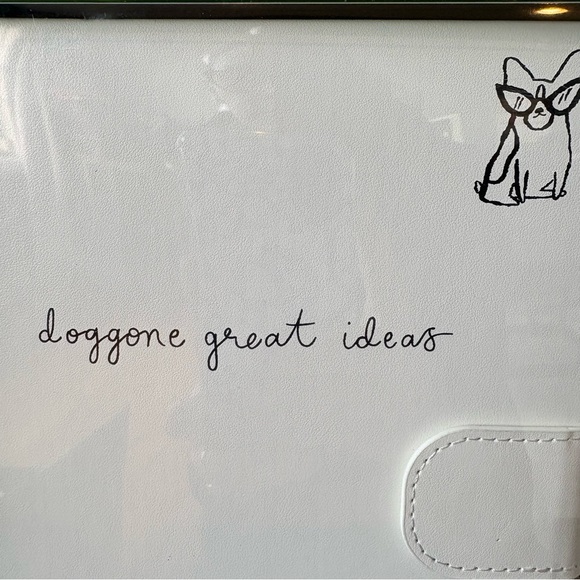 doggone great ideas